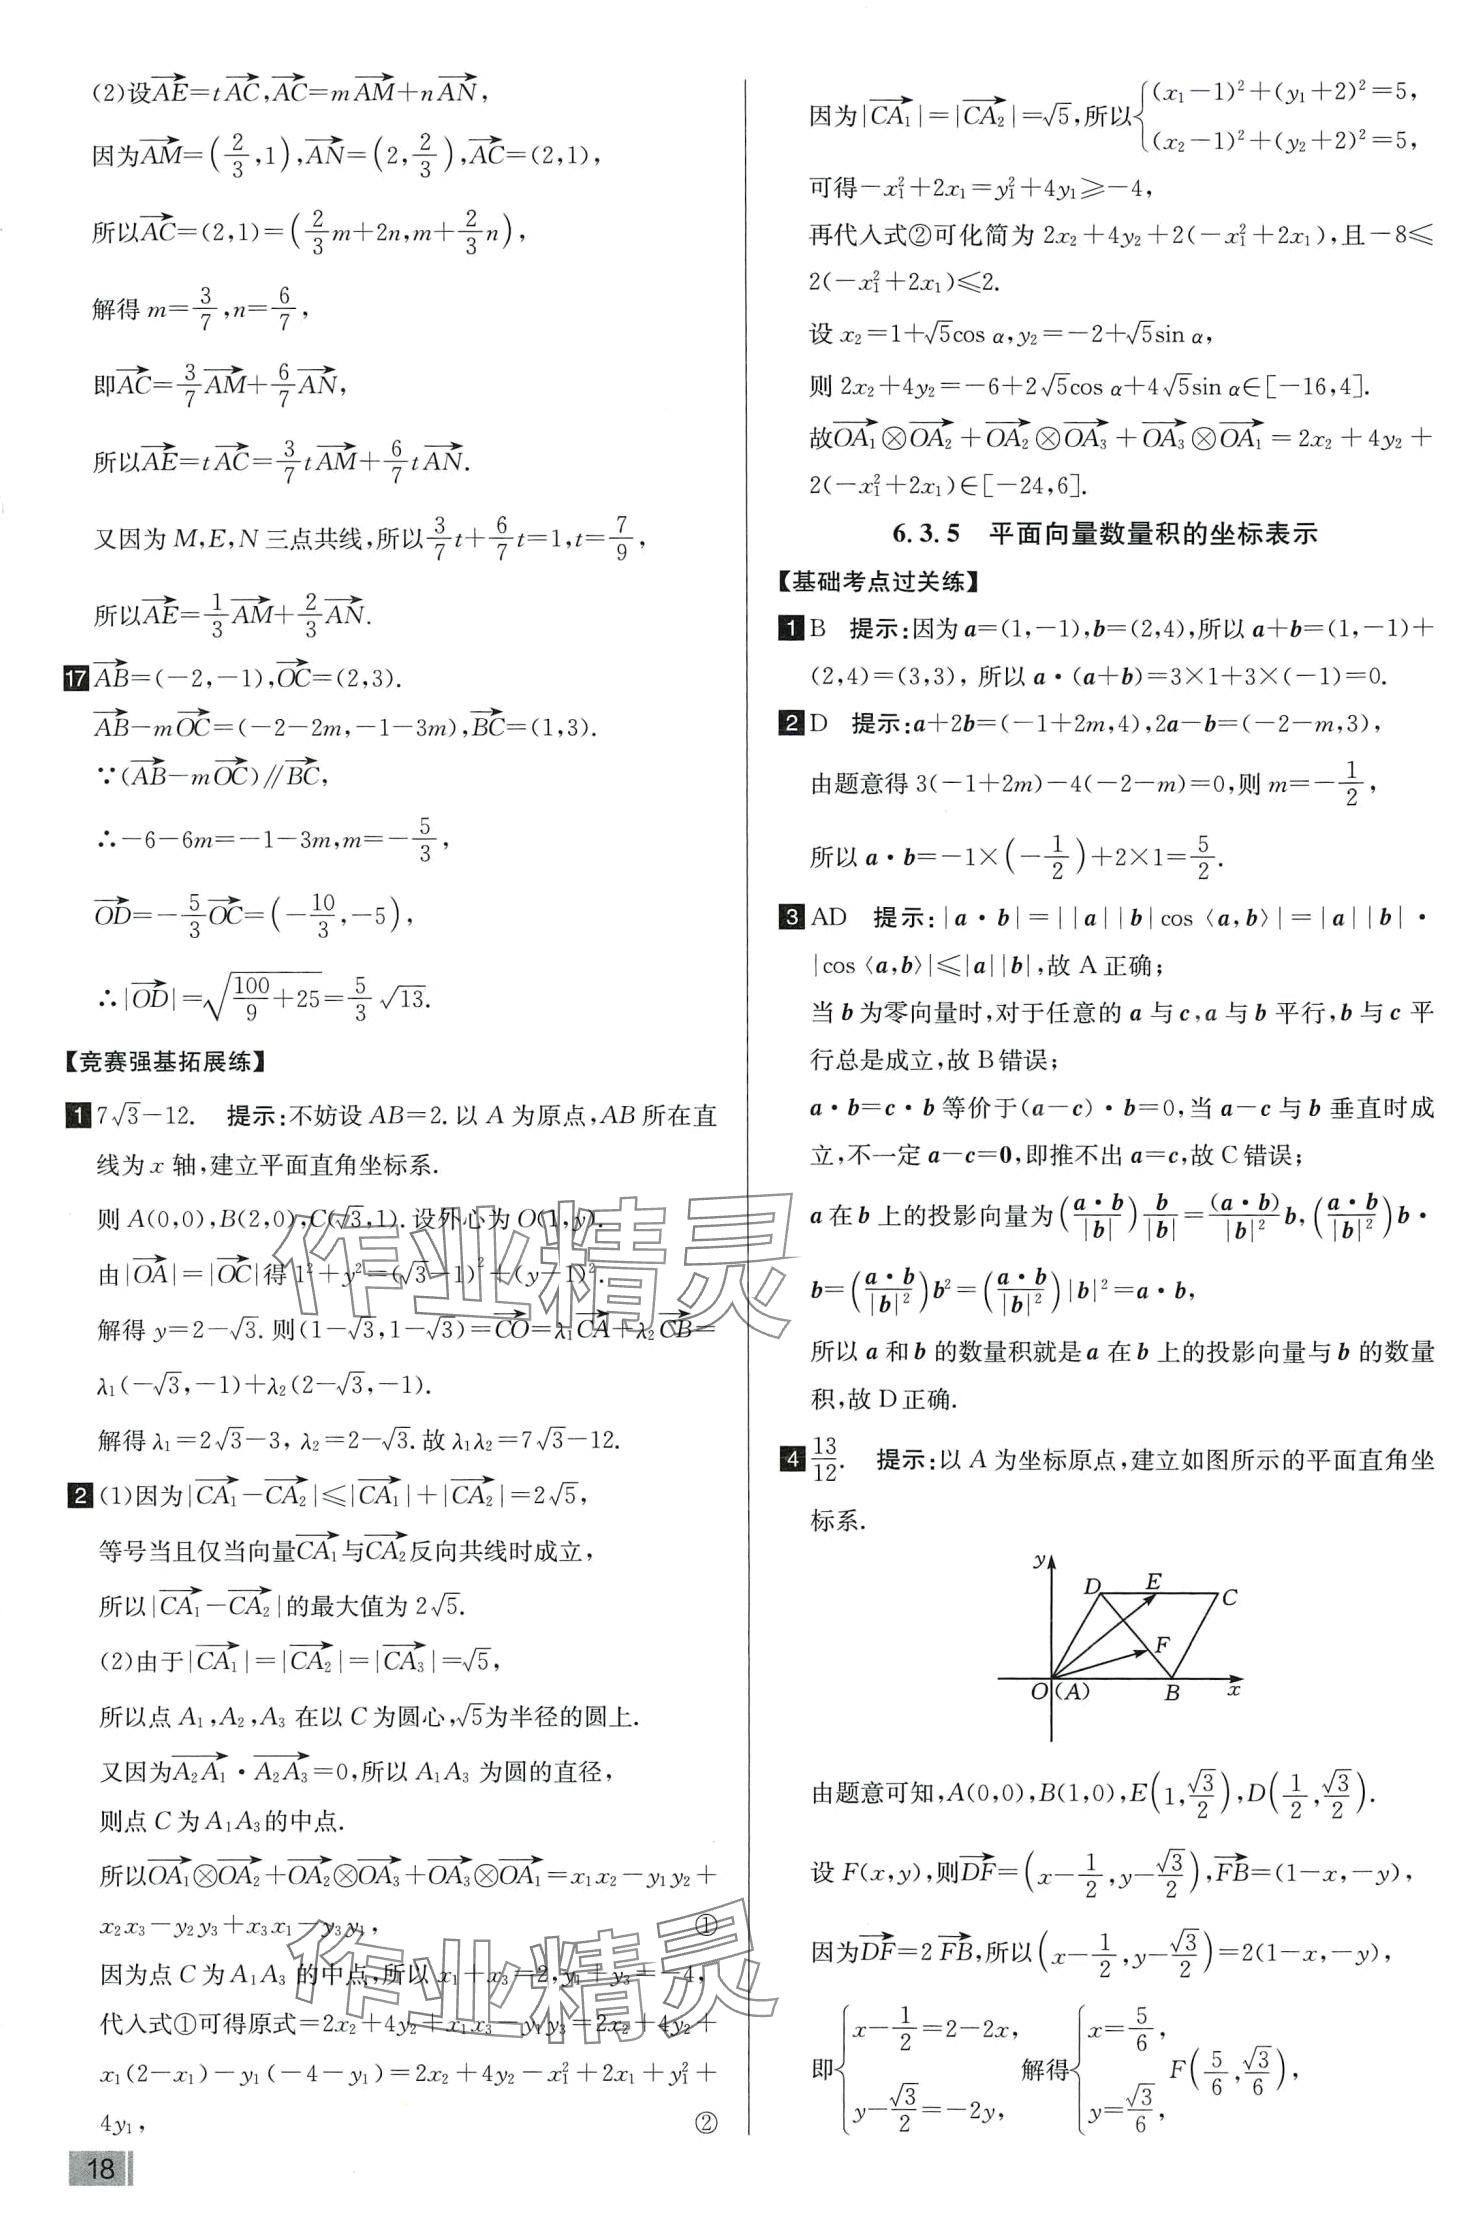 (2)设$\overrightarrow{AE}=t\overrightarrow{AC},\overrightarrow{AC}=m\overrightarrow{AM}+n\overrightarrow{AN}$,
因为$\overrightarrow{AM}=\left(\frac{2}{3},1\right),\overrightarrow{AN}=\left(2,\frac{2}{3}\right),\overrightarrow{AC}=(2,1)$,
所以$\overrightarrow{AC}=(2,1)=\left(\frac{2}{3}m+2n,m+\frac{2}{3}n\right)$,
解得 $m=\frac{3}{7},n=\frac{6}{7}$,
即$\overrightarrow{AC}=\frac{3}{7}\overrightarrow{AM}+\frac{6}{7}\overrightarrow{AN}$,
所以$\overrightarrow{AE}=t\overrightarrow{AC}=\frac{3}{7}t\overrightarrow{AM}+\frac{6}{7}t\overrightarrow{AN}$.
又因为 M,E,N 三点共线,所以$\frac{3}{7}t+\frac{6}{7}t=1,t=\frac{7}{9}$,
所以$\overrightarrow{AE}=\frac{1}{3}\overrightarrow{AM}+\frac{2}{3}\overrightarrow{AN}$.
17 $\overrightarrow{AB}=(-2,-1),\overrightarrow{OC}=(2,3)$.
$\overrightarrow{AB}-m\overrightarrow{OC}=(-2-2m,-1-3m),\overrightarrow{BC}=(1,3)$.
∵$(\overrightarrow{AB}-m\overrightarrow{OC})∥\overrightarrow{BC}$,
∴$-6-6m=-1-3m,m=-\frac{5}{3}$,
$\overrightarrow{OD}=-\frac{5}{3}\overrightarrow{OC}=\left(-\frac{10}{3},-5\right)$,
∴$|\overrightarrow{OD}|=\sqrt{\frac{100}{9}+25}=\frac{5}{3}\sqrt{13}$.
【竞赛强基拓展练】
1 $7\sqrt{3}-12$. 提示:不妨设 AB=2.以 A 为原点,AB 所在直
线为 x 轴,建立平面直角坐标系.
则 $A(0,0),B(2,0),C(\sqrt{3},1)$.设外心为 $O(1,y)$.
由$|\overrightarrow{OA}|=|\overrightarrow{OC}|$得 $1^2+y^2=(\sqrt{3}-1)^2+(y-1)^2$.
解得 $y=2-\sqrt{3}$.则$(1-\sqrt{3},1-\sqrt{3})=\overrightarrow{CO}=λ_1\overrightarrow{CA}+λ_2\overrightarrow{CB}=$
$λ_1(-\sqrt{3},-1)+λ_2(2-\sqrt{3},-1)$.
解得 $λ_1=2\sqrt{3}-3,λ_2=2-\sqrt{3}$.故 $λ_1λ_2=7\sqrt{3}-12$.
2 (1)因为$|\overrightarrow{CA_1}-\overrightarrow{CA_2}|≤|\overrightarrow{CA_1}|+|\overrightarrow{CA_2}|=2\sqrt{5}$,
等号当且仅当向量$\overrightarrow{CA_1}$与$\overrightarrow{CA_2}$反向共线时成立,
所以$|\overrightarrow{CA_1}-\overrightarrow{CA_2}|$的最大值为 $2\sqrt{5}$.
(2)由于$|\overrightarrow{CA_1}|=|\overrightarrow{CA_2}|=|\overrightarrow{CA_3}|=\sqrt{5}$,
所以点 $A_1,A_2,A_3$ 在以 C 为圆心,$\sqrt{5}$为半径的圆上.
又因为$\overrightarrow{A_2A_1}·\overrightarrow{A_2A_3}=0$,所以 $A_1A_3$ 为圆的直径,
则点 C 为 $A_1A_3$的中点.
所以$\overrightarrow{OA_1}⊗\overrightarrow{OA_2}+\overrightarrow{OA_2}⊗\overrightarrow{OA_3}+\overrightarrow{OA_3}⊗\overrightarrow{OA_1}=x_1x_2-y_1y_2+$
$x_2x_3-y_2y_3+x_3x_1-y_3y_1$, ①
因为点 C 为 $A_1A_3$ 的中点,所以 $x_1+x_3=2,y_1+y_3=-4$,
代入式①可得原式$=2x_2+4y_2+x_1x_3-y_1y_3=2x_2+4y_2+$
$x_1(2-x_1)-y_1(-4-y_1)=2x_2+4y_2-x_1^2+2x_1+y_1^2+$
$4y_1$, ②
18
因为$|\overrightarrow{CA_1}|=|\overrightarrow{CA_2}|=\sqrt{5}$,所以$\begin{cases}(x_1-1)^2+(y_1+2)^2=5,\\(x_2-1)^2+(y_2+2)^2=5,\end{cases}$
可得$-x_1^2+2x_1=y_1^2+4y_1≥-4$,
再代入式②可化简为 $2x_2+4y_2+2(-x_1^2+2x_1)$,且$-8≤$
$2(-x_1^2+2x_1)≤2$.
设 $x_2=1+\sqrt{5}\cos α,y_2=-2+\sqrt{5}\sin α$,
则 $2x_2+4y_2=-6+2\sqrt{5}\cos α+4\sqrt{5}\sin α∈[-16,4]$.
故$\overrightarrow{OA_1}⊗\overrightarrow{OA_2}+\overrightarrow{OA_2}⊗\overrightarrow{OA_3}+\overrightarrow{OA_3}⊗\overrightarrow{OA_1}=2x_2+4y_2+$
$2(-x_1^2+2x_1)∈[-24,6]$.
6.3.5 平面向量数量积的坐标表示
【基础考点过关练】
1 B 提示:因为 a=(1,-1),b=(2,4),所以 a+b=(1,-1)+
(2,4)=(3,3),所以 a·(a+b)=3×1+3×(-1)=0.
2 D 提示:a+2b=(-1+2m,4),2a-b=(-2-m,3),
由题意得 $3(-1+2m)-4(-2-m)=0$,则 $m=-\frac{1}{2}$,
所以 $a·b=-1×\left(-\frac{1}{2}\right)+2×1=\frac{5}{2}$.
3 AD 提示:|a·b|=||a||b|cos〈a,b〉|=|a||b|·
|cos〈a,b〉|≤|a||b|,故 A 正确;
当 b 为零向量时,对于任意的 a 与 c,a 与 b 平行,b 与 c 平
行总是成立,故 B 错误;
a·b=c·b 等价于(a-c)·b=0,当 a-c 与 b 垂直时成
立,不一定 a-c=0,即推不出 a=c,故 C 错误;
a 在 b 上的投影向量为$\left(\frac{a·b}{|b|}\right)\frac{b}{|b|}=\frac{(a·b)}{|b|^2}b,\left(\frac{a·b}{|b|^2}\right)b·$
$b=\left(\frac{a·b}{|b|^2}\right)b^2=\left(\frac{a·b}{|b|^2}\right)|b|^2=a·b$,
所以 a 和 b 的数量积就是 a 在 b 上的投影向量与 b 的数量
积,故 D 正确.
4 $\frac{13}{12}$. 提示:以 A 为坐标原点,建立如图所示的平面直角坐
标系.
y
D E C
F
O (A) B x
由题意可知,$A(0,0),B(1,0),E\left(1,\frac{\sqrt{3}}{2}\right),D\left(\frac{1}{2},\frac{\sqrt{3}}{2}\right)$.
设 $F(x,y)$,则$\overrightarrow{DF}=\left(x-\frac{1}{2},y-\frac{\sqrt{3}}{2}\right),\overrightarrow{FB}=(1-x,-y)$,
因为$\overrightarrow{DF}=2\overrightarrow{FB}$,所以$\left(x-\frac{1}{2},y-\frac{\sqrt{3}}{2}\right)=2(1-x,-y)$,
即$\begin{cases}x-\frac{1}{2}=2-2x,\\y-\frac{\sqrt{3}}{2}=-2y,\end{cases}$解得$\begin{cases}x=\frac{5}{6},\\y=\frac{\sqrt{3}}{6},\end{cases}$$F\left(\frac{5}{6},\frac{\sqrt{3}}{6}\right)$,
作业精灵
作业精灵